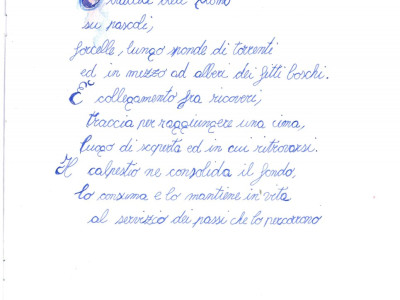 traccia dell'uomo
su pascoli,
forcelle, lungo sponde di torrenti
ed in mezzo ad alberi dei fitti boschi.
È collegamento fra ricoveri,
traccia per raggiungere una cima,
luogo di scoperta ed in cui ritrovarsi.
Il calpestio ne consolida il fondo,
lo consuma e lo mantiene in vita
al servizio dei passi che lo percorrono